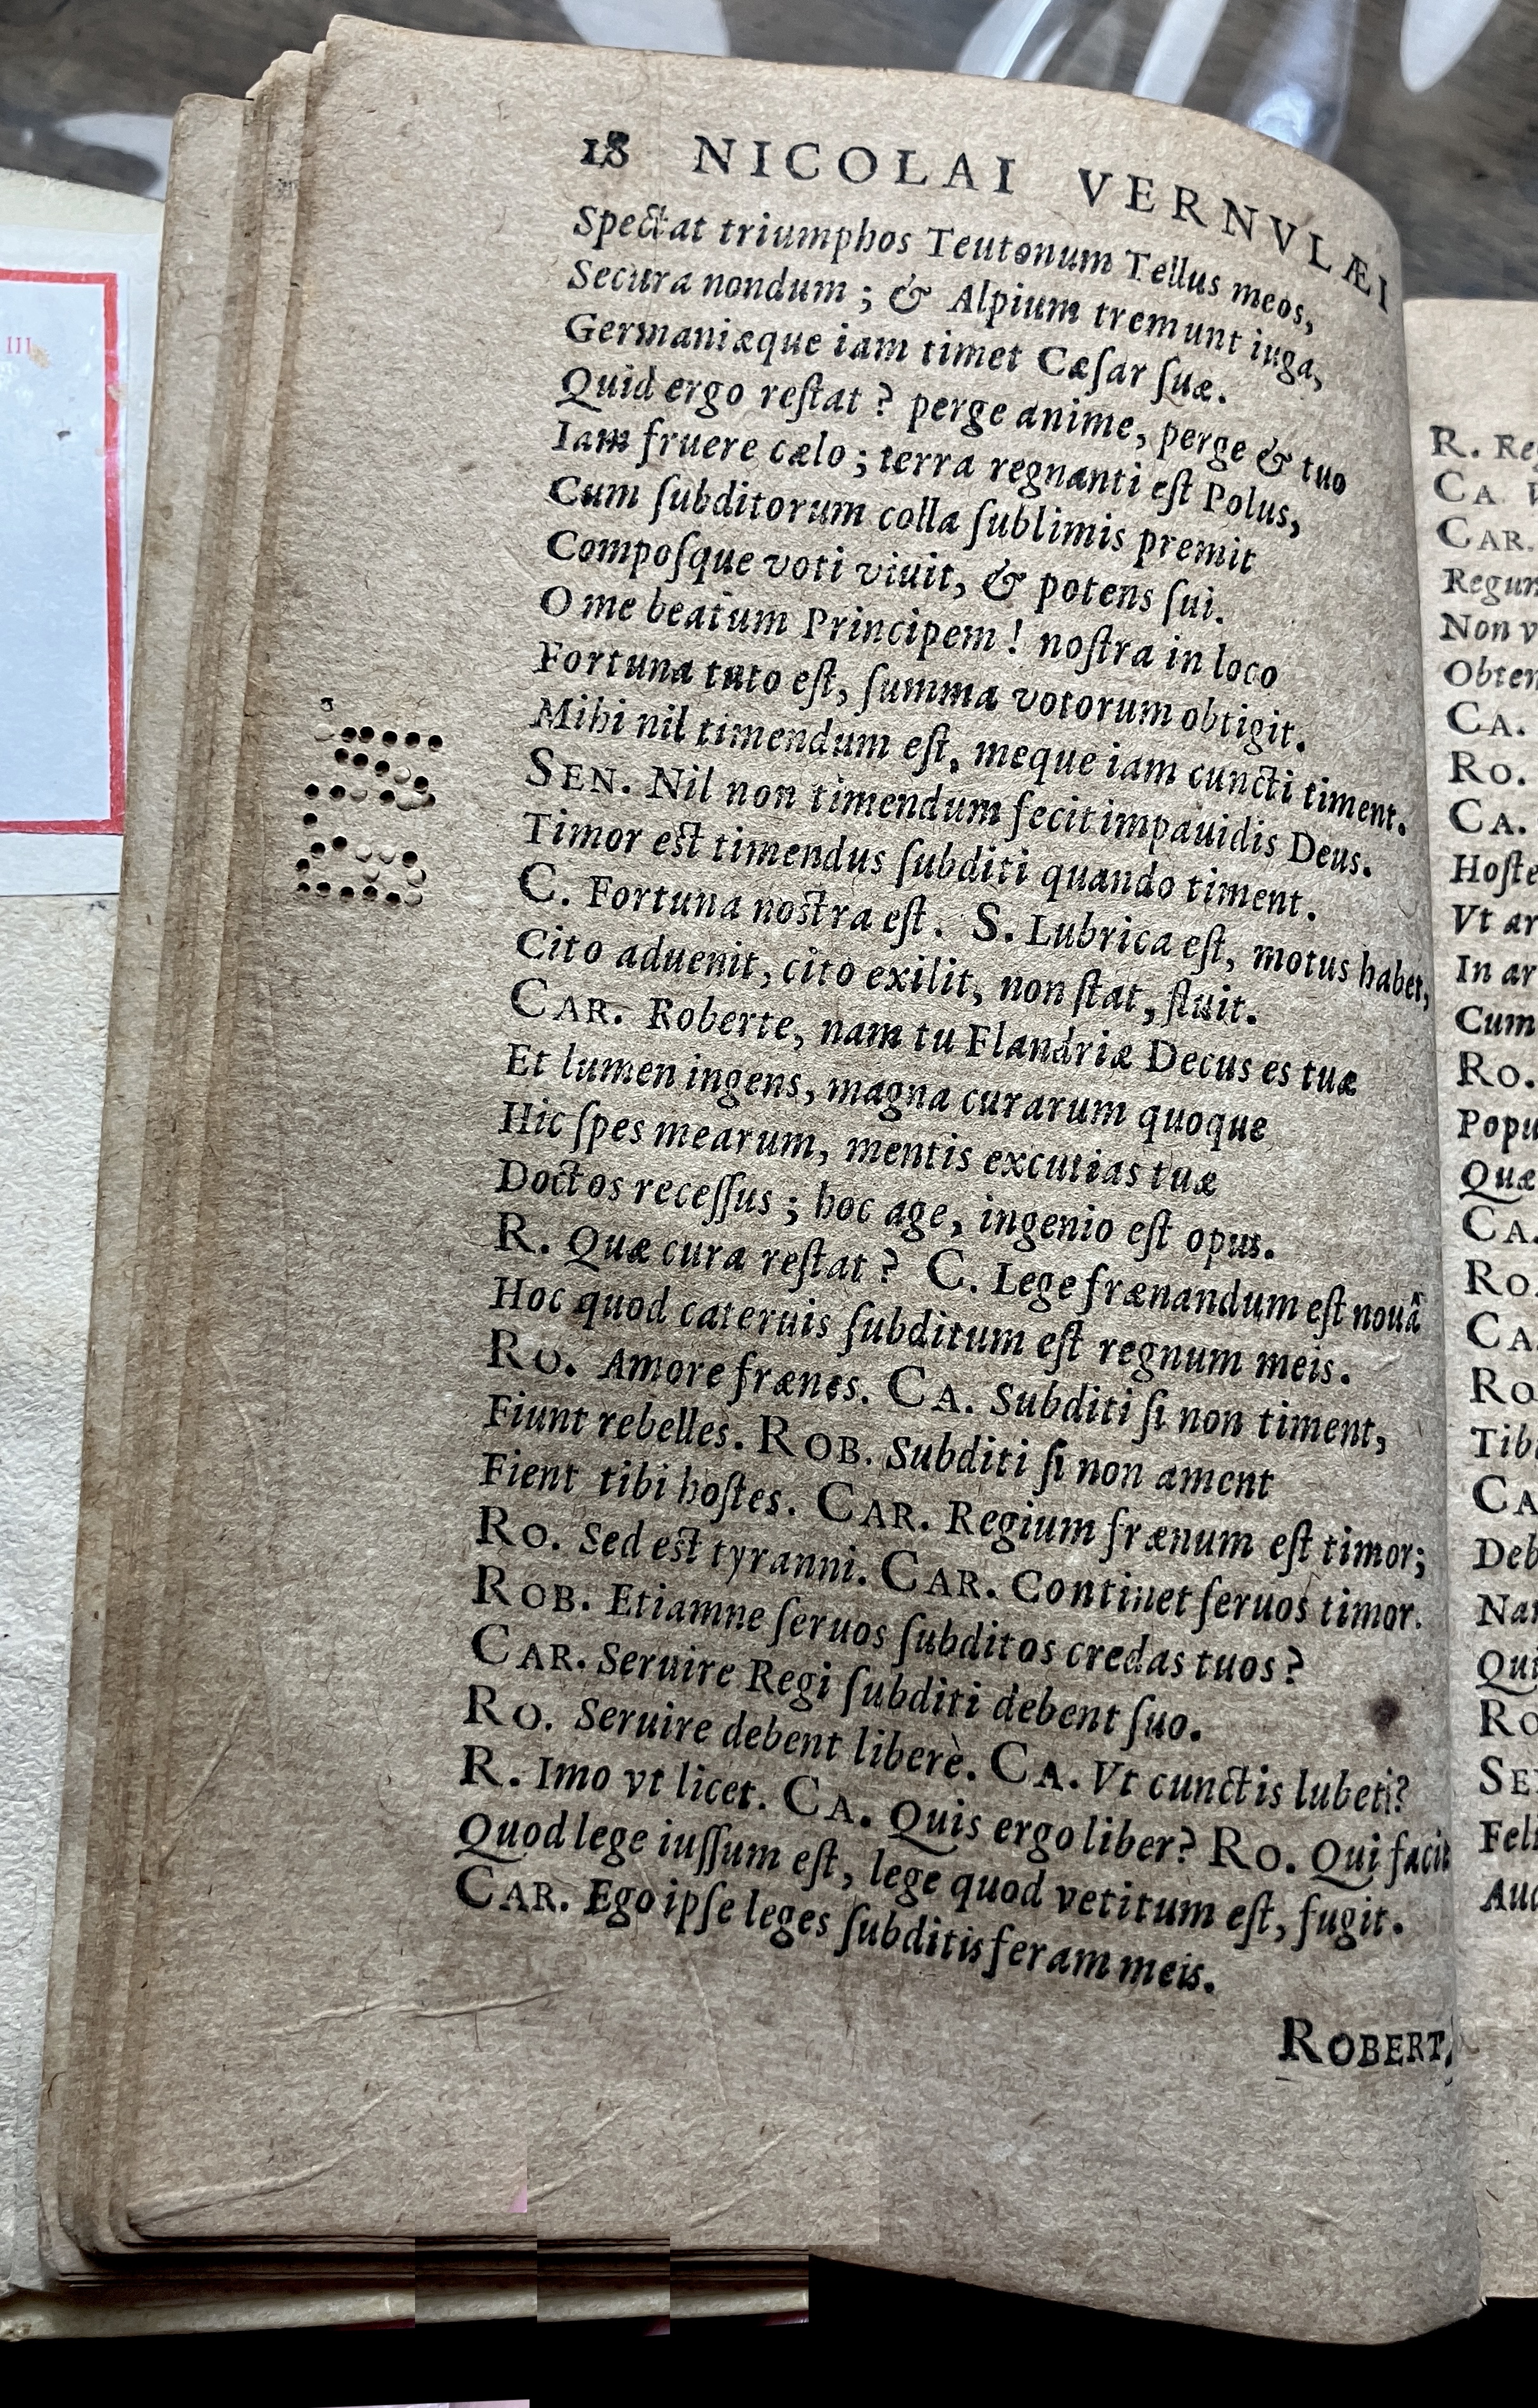 III
18 NICOLAI VERNVLÆI
Spectat triumphos Teutonum Tellus meos,
Secura nondum ; & Alpium tremunt iuga,
Germaniæque iam timet Cæſar ſuæ.
Quid ergo reſtat ? perge anime, perge & tuo
Iam fruere cælo ; terra regnanti eſt Polus,
Cum ſubditorum colla ſublimis premit
Compoſque voti viuit, & potens ſui.
O me beatum Principem ! noſtra in loco
Fortuna tuto eſt, ſumma votorum obtigit.
Mihi nil timendum eſt, meque iam cuncti timent.
SEN. Nil non timendum fecit impauidis Deus.
Timor est timendus ſubditi quando timent.
C. Fortuna nostra eſt. S. Lubrica eſt, motus habet,
Cito aduenit, cito exilit, non ſtat, fluit.
CAR. Roberte, nam tu Flandriæ Decus es tuæ
Et lumen ingens, magna curarum quoque
Hic ſpes mearum, mentis excutias tuæ
Doctos receſſus ; hoc age, ingenio eſt opus.
R. Quæ cura reſtat ? C. Lege frænandum eſt nouâ
Hoc quod cateruis ſubditum eſt regnum meis.
RO. Amore frænes. CA. Subditi ſi non timent,
Fiunt rebelles. ROB. Subditi ſi non ament
Fient tibi hoſtes. CAR. Regium frænum eſt timor;
RO. Sed est tyranni. CAR. Continet ſeruos timor.
ROB. Etiamne ſeruos ſubditos credas tuos ?
CAR. Seruire Regi ſubditi debent ſuo.
RO. Seruire debent liberè. CA. Vt cunctis lubet?
R. Imo vt licet. CA. Quis ergo liber? RO. Qui facit
Quod lege iuſſum eſt, lege quod vetitum eſt, fugit.
CAR. Ego ipſe leges ſubditis feram meis.
ROBERT.
R. Re
CA
CAR.
Regum
Non v
Obten
CA.
RO.
CA.
Hoſte
Vt ar
In ar
Cum
RO.
Popu
Quæ
CA.
RO
CA.
RO
Tibi
CA
Deb
Nam
Qui
RO
SE
Feli
Aud